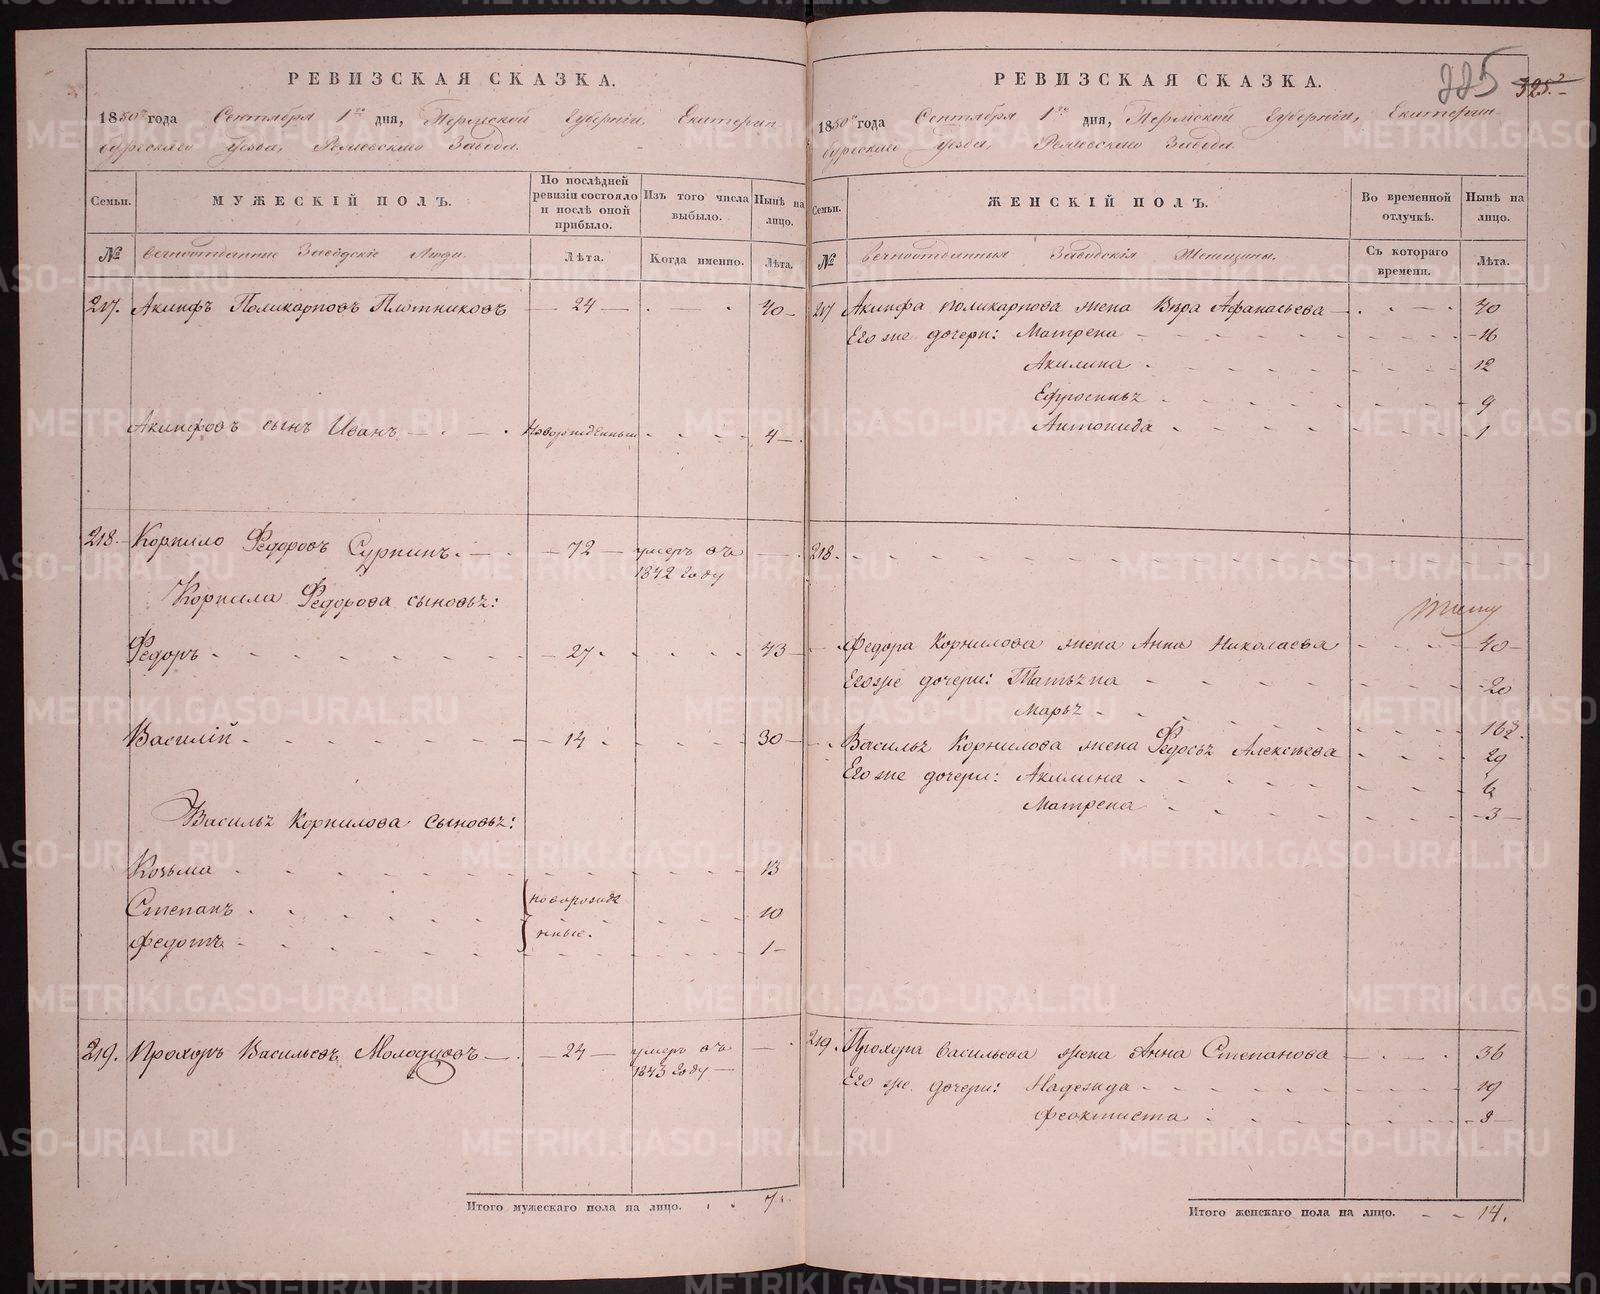 РЕВИЗСКАЯ СКАЗКА.
1850го года Сентября 1го дня, Пермской Губернiи, Екатерин-
бургскаго Уезда, Режевскаго Завода.
Семьи.
МУЖЕСКIЙ ПОЛЪ.
По послѣдней ревизiи состояло и послѣ оной прибыло.
Изъ того числа выбыло.
Нынѣ на лицо.
№
Вечноотданные Заводскiе Люди.
Лѣта.
Когда именно.
Лѣта.
217. Акинфъ Поликарповъ Плотниковъ 24 40
Акинфовъ сынъ Иванъ новорожденный 4
218. Корнило Федоровъ Сурнинъ. 72 умеръ въ 1842 году
Корнила Федорова сыновья:
Федоръ 27 43
Василiй 14 30
Василья Корнилова сыновья:
Козьма 13
Степанъ новорожде 10
Федотъ нные. 1
219. Прохоръ Васильевъ Молодцовъ 24 умеръ въ 1843 году
Итого мужескаго пола на лицо. 7.
225 325.
РЕВИЗСКАЯ СКАЗКА.
1850го года Сентября 1го дня, Пермской Губернiи, Екатерин-
бургскаго Уезда, Режевскаго Завода.
Семьи.
ЖЕНСКIЙ ПОЛЪ.
Во временной отлучкѣ.
Нынѣ на лицо.
№
Вечноотданныя Заводскiя Женщины.
Съ котораго времени.
Лѣта.
217 Акинфа Поликарпова жена Вѣра Афанасьева 40
Его же дочери: Матрена 16
Акилина 12
Ефросинья 9
Антонида 1
218.
Федора Корнилова жена Анна Николаева 40
Его же дочери: Татьяна 20
Марья 16
Василья Корнилова жена Федосья Алексѣева 29
Его же дочери: Акилина 6
Матрена 3
219. Прохора Васильева жена Анна Степанова 36
Его же дочери: Надежда 19
Феоктиста 8
Итого женскаго пола на лицо. 14.
METRIKI.GASO-URAL.RU